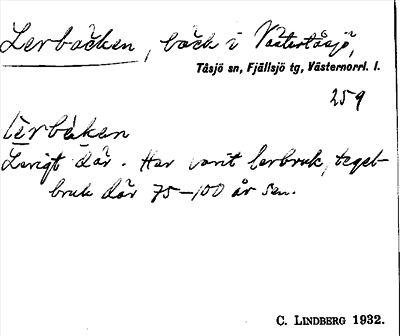 Lerbäcken, bäck i Västertåsjö,
Tåsjö sn, Fjällsjö tg, Västernorrl. l.
259
lèrbäkan
Lerigt där. Har varit lerbruk, tegel-
bruk där 75–100 år sen.
C. LINDBERG 1932.